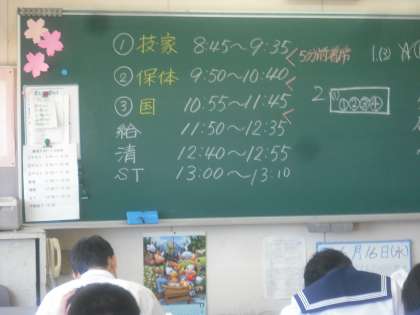 ① 技家 8:45～9:35
5分前着席
② 保体 9:50～10:40
③ 国 10:55～11:45
給 11:50～12:35
清 12:40～12:55
ST 13:00～13:10
1.(3) A①
2
①②③④
6月16日(水)